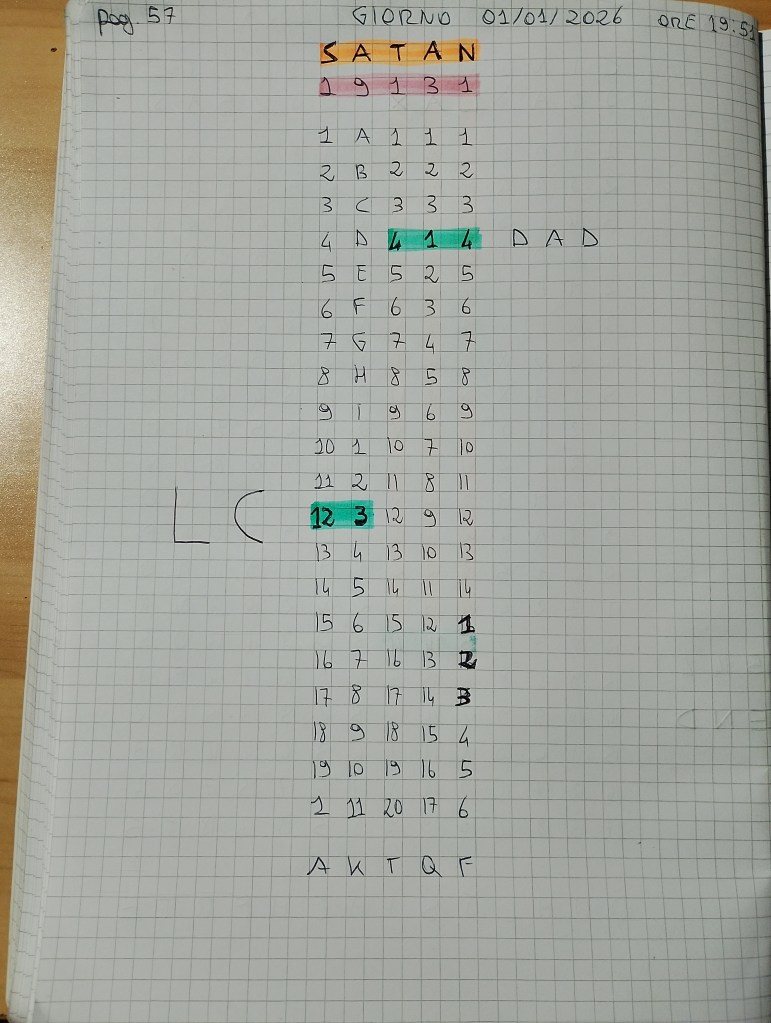 pag. 57 GIORNO 01/01/2026 ORE 19:51
S A T A N
1 9 1 3 1
1 A 1 1 1
2 B 2 2 2
3 C 3 3 3
4 D 4 1 4 D A D
5 E 5 2 5
6 F 6 3 6
7 G 7 4 7
8 H 8 5 8
9 I 9 6 9
10 1 10 7 10
11 2 11 8 11
L C 12 3 12 9 12
13 4 13 10 13
14 5 14 11 14
15 6 15 12 1
16 7 16 13 2
17 8 17 14 3
18 9 18 15 4
19 10 19 16 5
1 11 20 17 6
A K T Q F